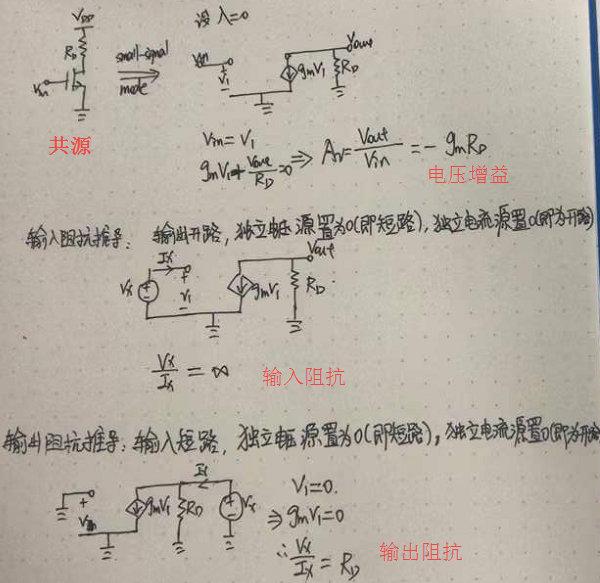 VDD
设 λ=0
RD
small-signal
mode
Vin
Vin
+
V1
-
gmV1
Vout
RD
共源
Vin = V1
gmV1 + Vout/RD = 0 ⇒ Av = Vout/Vin = - gmRD
电压增益
输入阻抗推导: 输出开路, 独立电压源置为0(即短路), 独立电流源置0(即为开路)
Ix
Vx
+
V1
-
gmV1
Vout
RD
Vx/Ix = ∞
输入阻抗
输出阻抗推导: 输入短路, 独立电压源置为0(即短路), 独立电流源置0(即为开路)
Ix
+
gmV1
RD
Vx
V1=0.
⇒ gmV1=0
∴ Vx/Ix = RD
输出阻抗